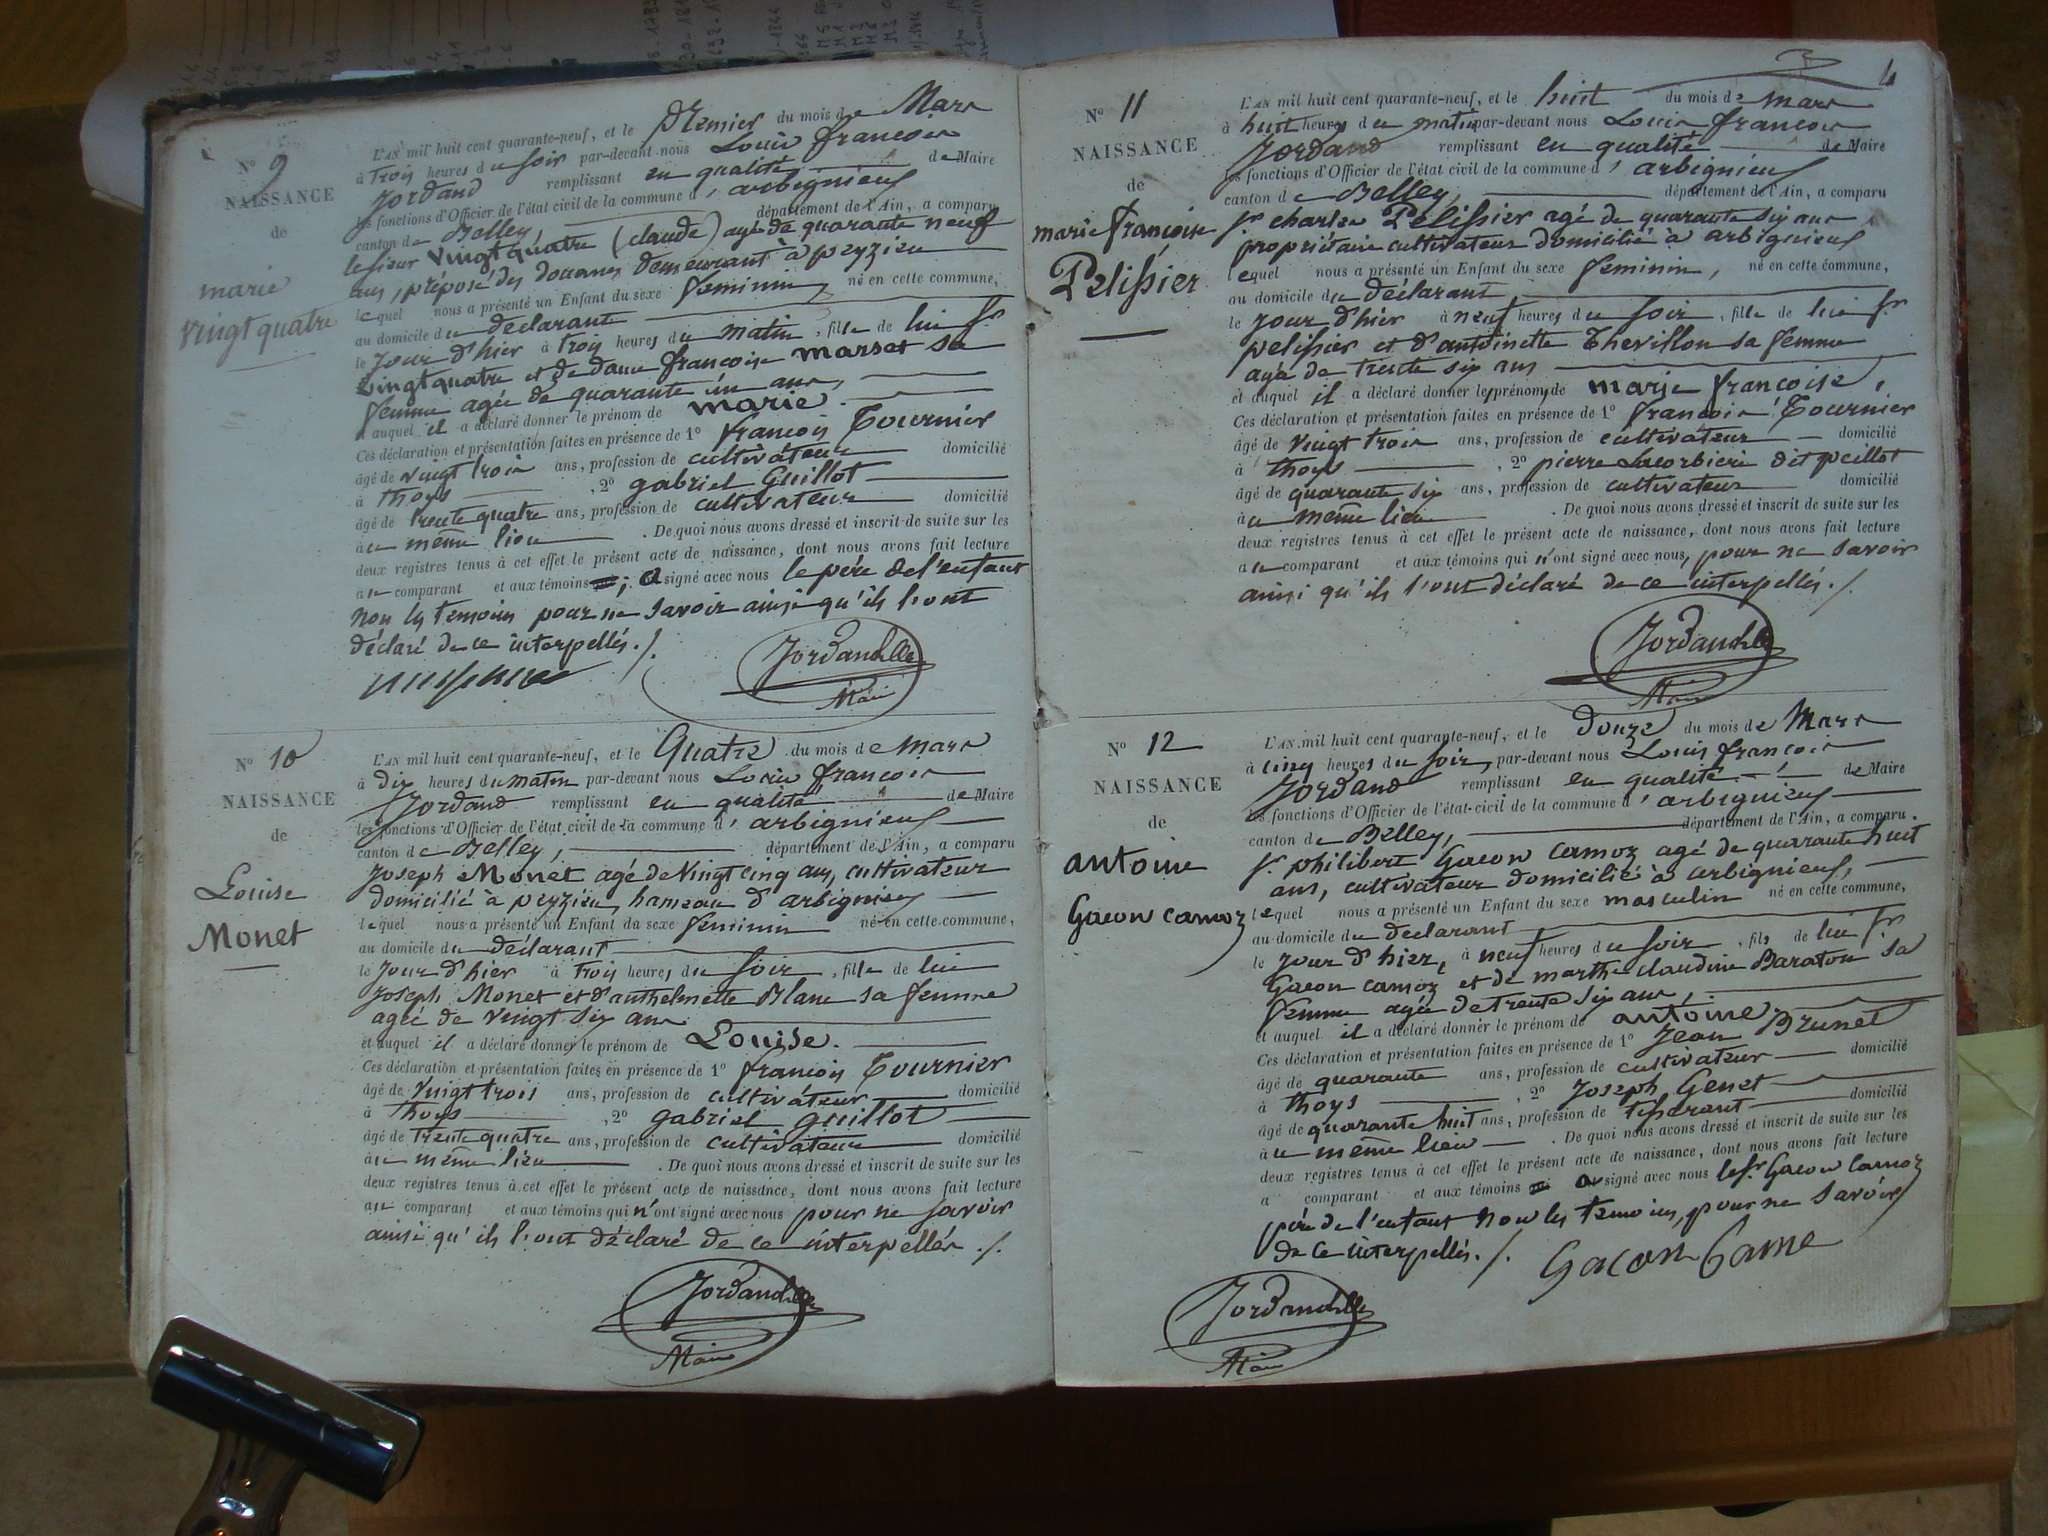 N° 9
NAISSANCE
de
marie
vingtquatre
L'AN mil huit cent quarante-neuf, et le premier du mois de Mars
à trois heures du soir par-devant nous Louis françois
Jordand remplissant en qualité de Maire
les fonctions d'Officier de l'état civil de la commune d'arbignieu
canton de Belley département de l'Ain, a comparu
le sieur vingtquatre (claude) agé de quarante neuf
ans, préposé des douanes demeurant à peyzieu
lequel nous a présenté un Enfant du sexe feminin, né en cette commune,
au domicile du déclarant
le jour d'hier à trois heures du matin, fille de lui sr
vingtquatre et de dame françoise marset sa
femme agée de quarante un ans,
auquel il a déclaré donner le prénom de marie.
Ces déclaration et présentation faites en présence de 1° françois Tournier
âgé de vingt trois ans, profession de cultivateur domicilié
à thoys , 2° gabriel Guillot
âgé de trente quatre ans, profession de cultivateur domicilié
au même lieu . De quoi nous avons dressé et inscrit de suite sur les
deux registres tenus à cet effet le présent acte de naissance, dont nous avons fait lecture
au comparant et aux témoins ; a signé avec nous le père de l'enfant
non les temoins pour ne savoir ainsi qu'ils l'ont
déclaré de ce interpellés./.
Jordand
Maire
N° 10
NAISSANCE
de
Louise
Monet
L'AN mil huit cent quarante-neuf, et le Quatre du mois de Mars
à dix heures du matin par-devant nous Louis françois
Jordand remplissant en qualité de Maire
les fonctions d'Officier de l'état civil de la commune d'arbignieu
canton de Belley, département de l'Ain, a comparu
Joseph Monet agé de vingt cinq ans, cultivateur
domicilié à peyzieu, hameau d'arbignieu
lequel nous a présenté un Enfant du sexe feminin né en cette commune,
au domicile du déclarant
le jour d'hier à trois heures du soir, fille de lui
Joseph Monet et d'anthelmette Blanc sa femme
agée de vingt six ans
et auquel il a déclaré donner le prénom de Louise.
Ces déclaration et présentation faites en présence de 1° françois Tournier
âgé de vingt trois ans, profession de cultivateur domicilié
à thoys , 2° gabriel guillot
âgé de trente quatre ans, profession de cultivateur domicilié
au même lieu . De quoi nous avons dressé et inscrit de suite sur les
deux registres tenus à cet effet le présent acte de naissance, dont nous avons fait lecture
au comparant et aux témoins qui n'ont signé avec nous pour ne savoir
ainsi qu'ils l'ont déclaré de ce interpellés ./.
Jordand
Maire
N° 11
NAISSANCE
de
marie françoise
Pelissier
L'AN mil huit cent quarante-neuf, et le huit du mois de mars
à huit heures du matin par-devant nous Louis françois
Jordand remplissant en qualité de Maire
les fonctions d'Officier de l'état civil de la commune d'arbignieu
canton de Belley, département de l'Ain, a comparu
sr charles Pelissier agé de quarante six ans
propriétaire cultivateur domicilié à arbignieu
lequel nous a présenté un Enfant du sexe feminin, né en cette commune,
au domicile du déclarant
le jour d'hier à neuf heures du soir, fille de lui sr
pelissier et d'antoinette Thevillon sa femme
agée de trente six ans
et auquel il a déclaré donner les prénom de marie françoise,
Ces déclaration et présentation faites en présence de 1° françois Tournier
âgé de vingt trois ans, profession de cultivateur domicilié
à thoys , 2° pierre Lacorbiere dit peillot
âgé de quarante six ans, profession de cultivateur domicilié
au même lieu . De quoi nous avons dressé et inscrit de suite sur les
deux registres tenus à cet effet le présent acte de naissance, dont nous avons fait lecture
au comparant et aux témoins qui n'ont signé avec nous, pour ne savoir
ainsi qu'ils l'ont déclaré de ce interpellés./.
Jordand
Maire
N° 12
NAISSANCE
de
antoine
Gacon camoz
L'AN mil huit cent quarante-neuf, et le Douze du mois de Mars
à cinq heures du soir, par-devant nous Louis françois
Jordand remplissant en qualité de Maire
les fonctions d'Officier de l'état-civil de la commune d'arbignieu
canton de Belley, département de l'Ain, a comparu
sr philibert Gacon camoz agé de quarante huit
ans, cultivateur domicilié à arbignieu,
lequel nous a présenté un Enfant du sexe masculin né en cette commune,
au domicile du déclarant
le jour d'hier, à neuf heures du soir, fils de lui sr
Gacon camoz et de marthe claudine Baraton sa
femme agée de trente six ans,
et auquel il a déclaré donner le prénom de antoine.
Ces déclaration et présentation faites en présence de 1° Jean Brunet
âgé de quarante ans, profession de cultivateur domicilié
à thoys , 2° Joseph Genet
âgé de quarante huit ans, profession de tisserant domicilié
au même lieu . De quoi nous avons dressé et inscrit de suite sur les
deux registres tenus à cet effet le présent acte de naissance, dont nous avons fait lecture
a comparant et aux témoins a signé avec nous le sr Gacon Camoz
père de l'enfant non les temoins, pour ne savoir
de ce interpellés./.
Gacon Came
Jordand
Maire